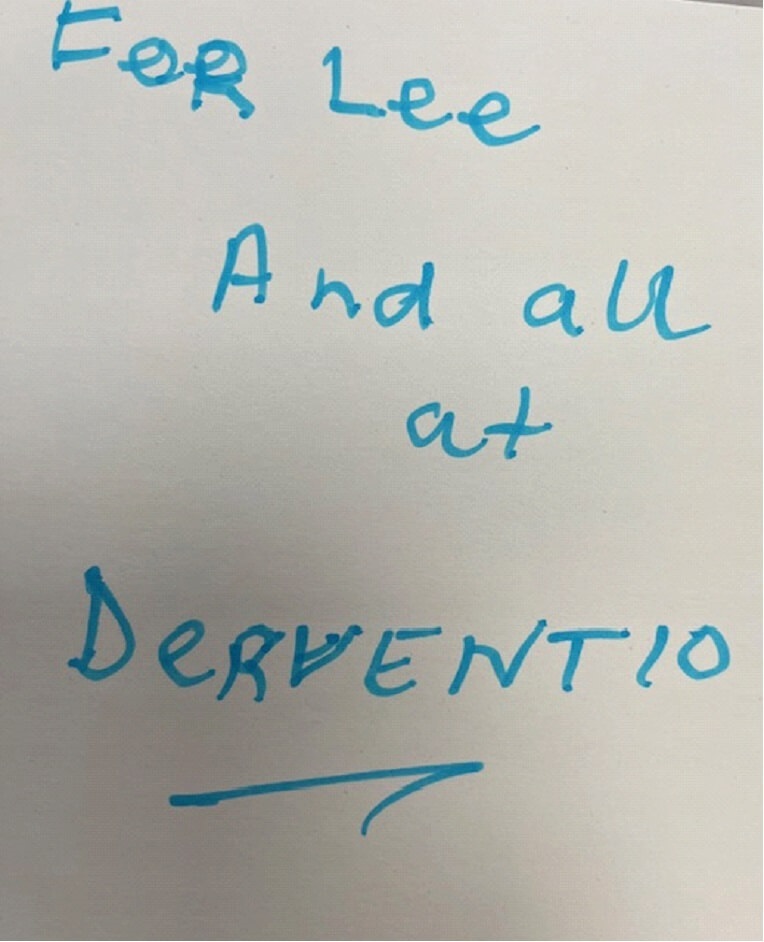 FOR Lee
And all
at
DeRVENTIO